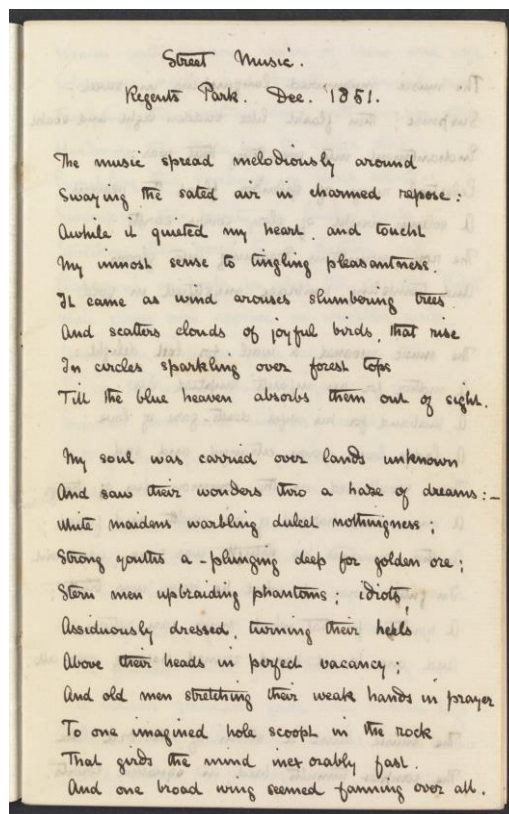 Street Music.
Regents Park. Dec. 1851.
The music spread melodiously around
Swaying the sated air in charmed repose:
Awhile it quieted my heart, and toucht
My inmost sense to tingling pleasantness.
It came as wind arouses slumbering trees
And scatters clouds of joyful birds, that rise
In circles sparkling over forest tops
Till the blue heaven absorbs them out of sight.
My soul was carried over lands unknown
And saw their wonders thro a haze of dreams:—
White maidens warbling dulcet nothingness;
Strong youths a-plunging deep for golden ore;
Stern men upbraiding phantoms; idiots,
Assiduously dressed, turning their heels
Above their heads in perfect vacancy;
And old men stretching their weak hands in prayer
To one imagined hole scoopt in the rock
That girds the mind inexorably fast.
And one broad wing seemed fanning over all.